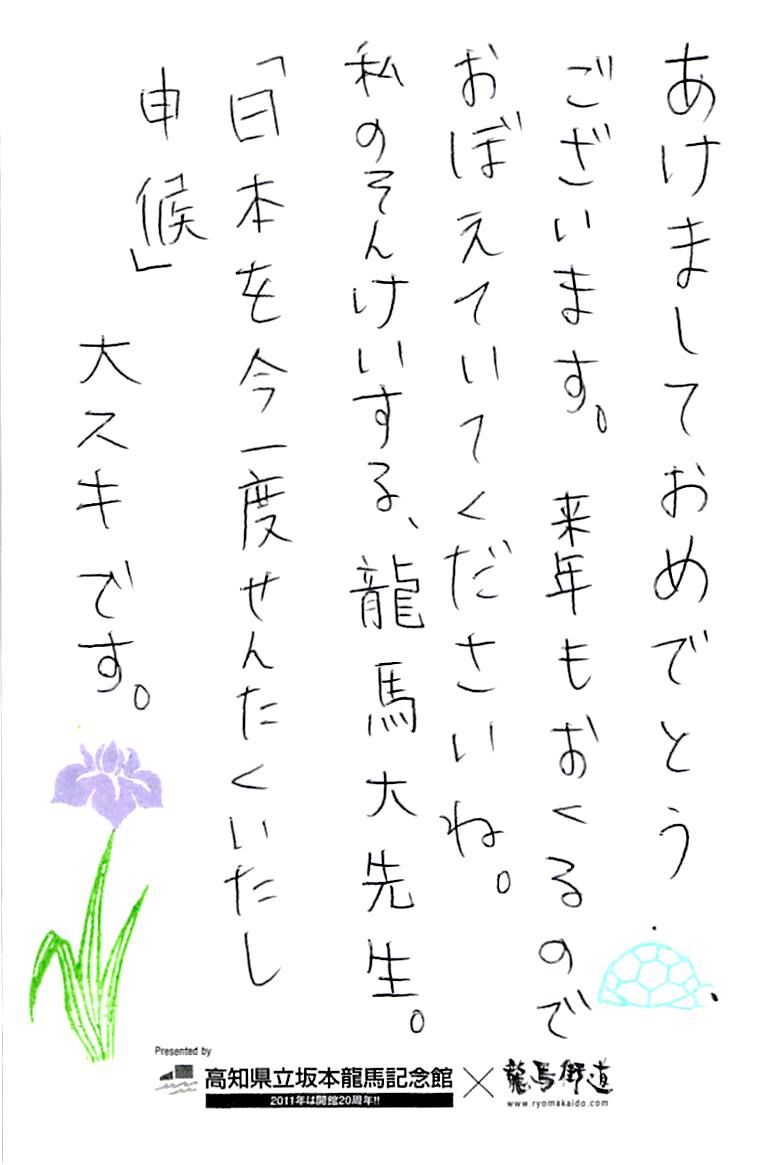 あけましておめでとう
ございます。 来年もおくるので
おぼえていてくださいね。
私のそんけいする、龍馬大先生。
「日本を今一度せんたくいたし
申候」 大スキです。
Presented by
高知県立坂本龍馬記念館
2011年は開館20周年!!
×
龍馬街道
www.ryomakaido.com